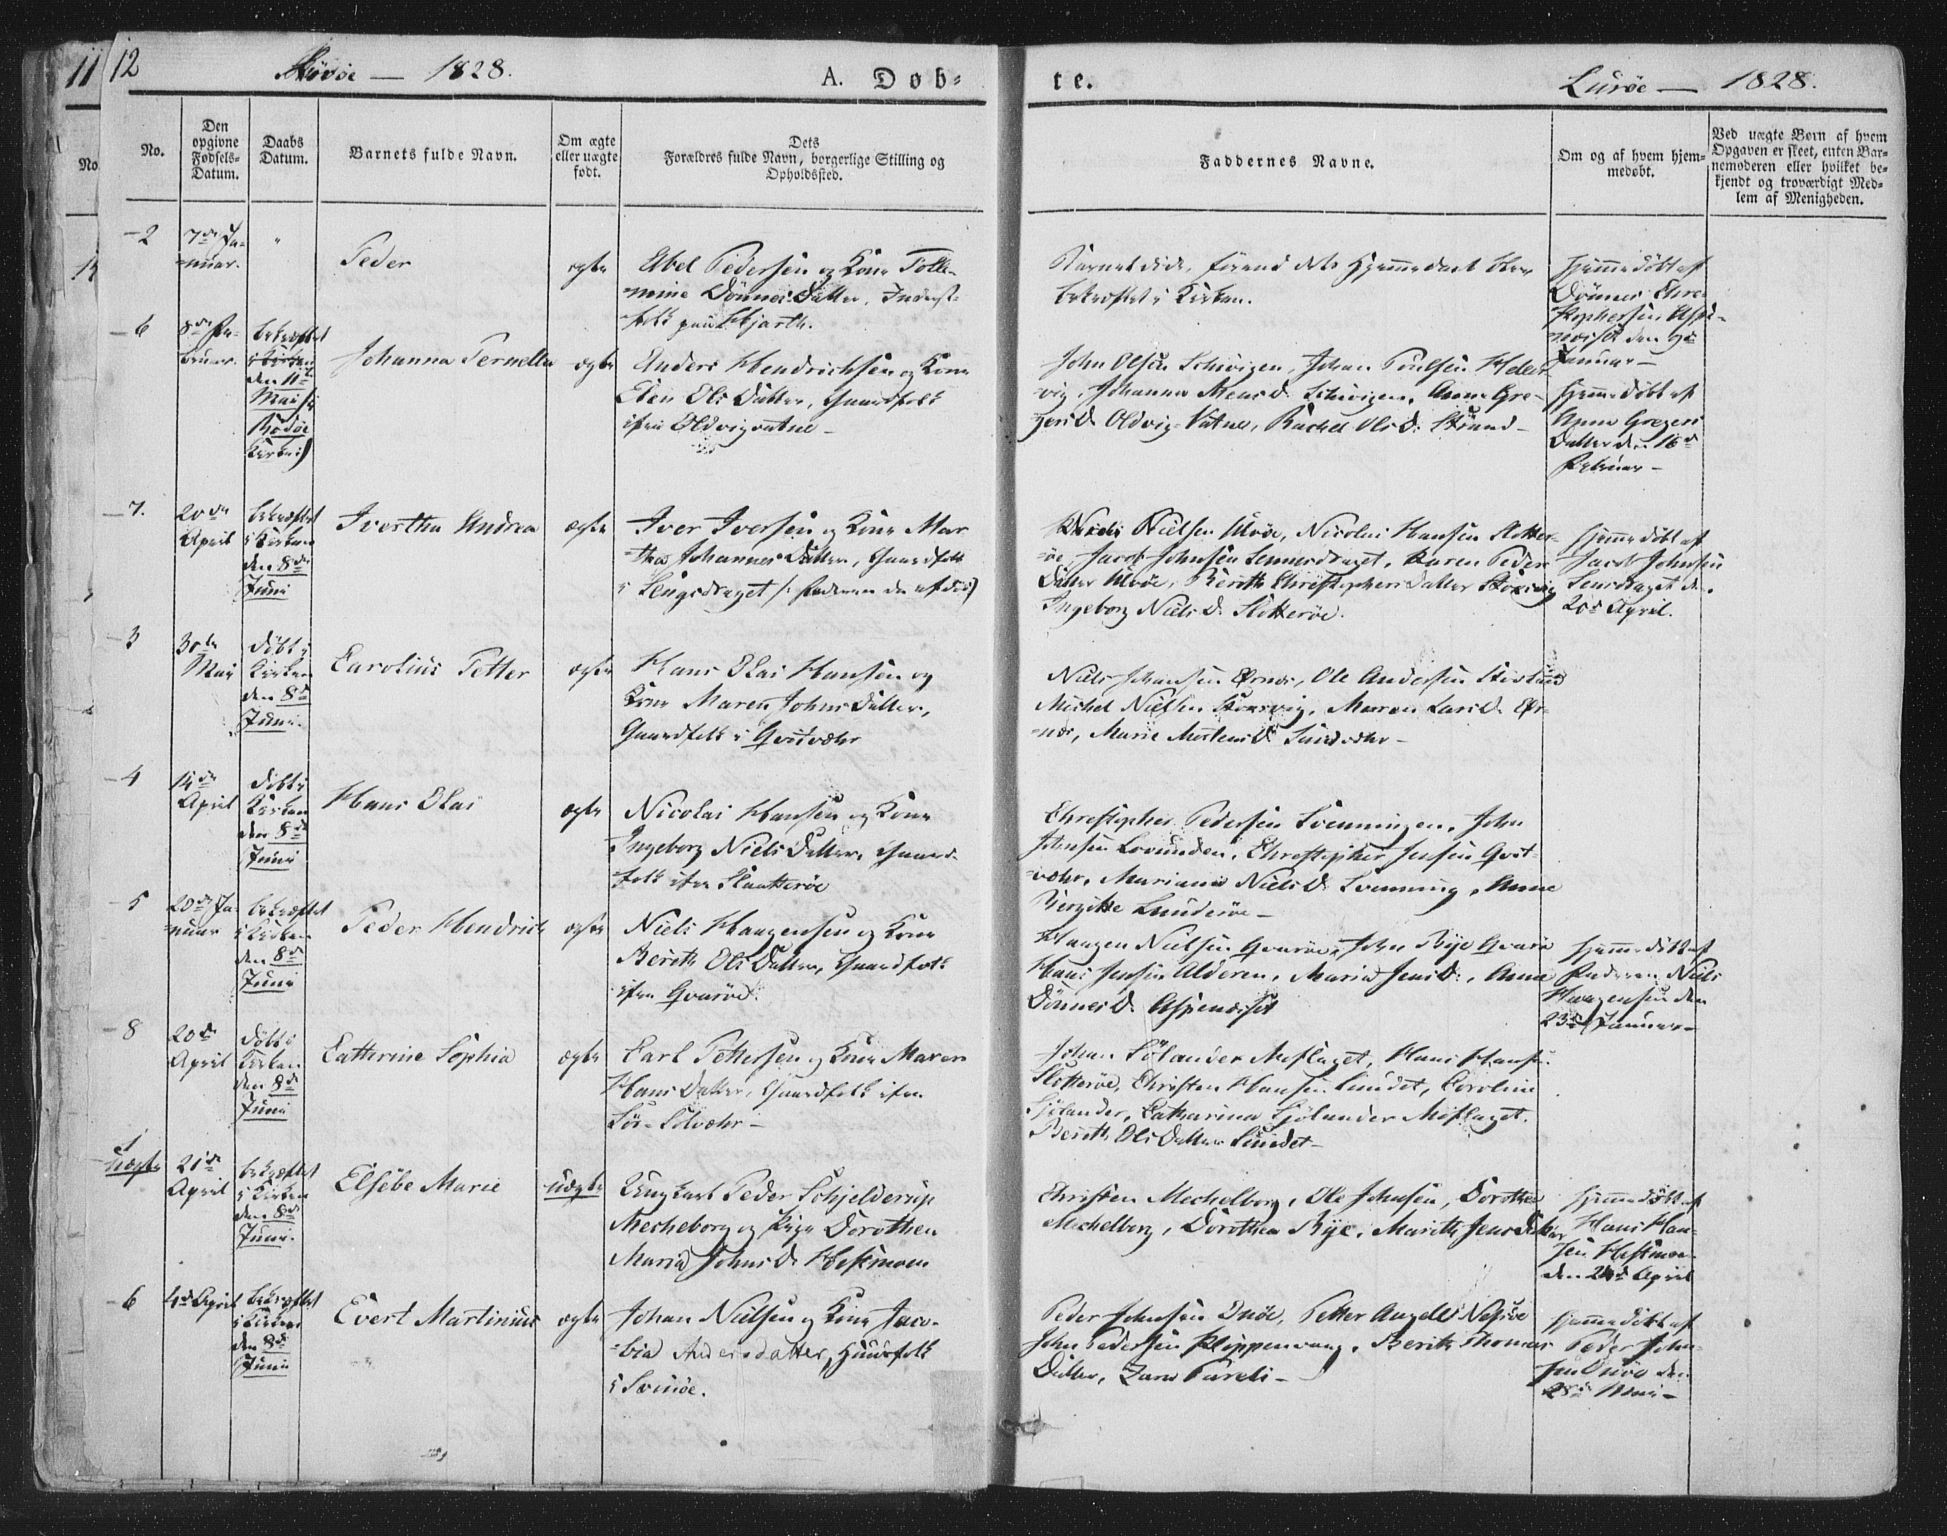 11 12
1828.
A. Døb-
te.
Lurøe — 1828.
No.
No.
Den
opgivne
Fødsels-
Datum.
Daabs
Datum.
Barnets fulde Navn.
Om ægte
eller uægte
født.
Dets
Forældres fulde Navn, borgerlige Stilling og
Opholdssted.
Faddernes Navne.
Om og af hvem hjem-
medøbt.
Ved uægte Børn af hvem
Opgaven er skeet, enten Bar-
nemoderen eller hvilket be-
kjendt og troværdigt Med-
lem af Menigheden.
2
7de Ja-
nuar.
"
Peder
ægte
Abel Pedersen og Kone Tolle-
mine Dønnes Datter, Inderst-
folk paa Hjarth.
Barnet døde, førend dets Hjemmedaab blev
bekræftet i Kirken.
Hjemmedøbt af
Dønnes Chri-
stophersen
den
Januar —
6
8de Fe-
bruar.
bekræftet
i Kirken
den 11te
Mai
Rødøe
Kirke)
Johanna Pernella
ægte
Anders Hendrichsen og Kone
Elen Ols Datter, Gaardfolk
ifra Oldvigvatne —
John Olsen Selsvigen, Johan Poulsen
vig, Johanna D. Selsvigen, Anne Gre-
gers D. Oldvig-Vatne, Rachel Ols D. Strand —
Hjemmedøbt af
Anne Gregers
Datter den 16de
Februar —
7.
20de
April
bekræftet
i Kirken
den 8de
Juni
Ivertha Andrea
ægte
Iver Iversen og Kone Mar-
tha Johannes Datter, Gaardfolk
i Lengsdraget (: Faderen er død)
Nielsen Alvøe, Nicolai Hansen Slotter-
øe, Jacob Johnsen Lensdraget, Karen Peder
Datter Alvøe, Berith Christophers Datter
Ingeborg Niels D. Slotterøe.
Hjemmedøbt af
Jacob Johnsen
Lensdraget den
20de April.
3
30te
Mai
døbt i
Kirken
den 8de
Juni.
Carolius Petter
ægte
Hans Olai Hansen og
Kone Maren Johns Datter,
Gaardfolk i Qvitvæhr
Niels Johansen Ørnes, Ole Andersen
Michel Nielsen Storvig, Maren Lars D. Ør-
nes, Marie Mortens D. Sundvæhr —
4
14de
April
døbt i
Kirken
den 8de
Juni
Hans Olai
ægte
Nicolai Hansen og Kone
Ingeborg Niels Datter, Gaard-
folk ifra Slaatterøe
Christopher Pedersen Svenningen, John
Johnsen Lovunden, Christopher Jensen Qvit-
væhr, Mariana Niels D. Svenning, Anne
Birgitte Sunderøe —
5
20de Ja-
nuar
bekræftet
i Kirken
den 8de
Juni
Peder Hendrich
ægte
Niels Haagensen og Kone
Berith Ols Datter, Gaardfolk
ifra Qvarøe.
Haagen Nielsen Qvarøe, John Rye Qvarøe
Hans Jensen Alderen, Maria Jens D., Anne
Dønnes D. Aspenæsset
Hjemmedøbt af
Faderen Niels
Haagensen den
23de Januar —
8
20de
April
Døbt i
Kirken
den 8de
Juni
Catherine Sophia
ægte
Carl Pettersen og Kone Maren
Hans Datter, Gaardfolk ifra
Sør-Solvæhr —
Johan Sölander Moflaget, Hans Hansen
Slotterøe, Christen Hansen Sundet, Caroline
Sjölander, Catharina Sjölander Moflaget.
Berith Ols Datter Sundet —
1
uægte
21de
April
bekræftet
i Kirken
den 8de
Juni.
Elsebe Marie
uægte
Ungkarl Peder Schjelderup
Mecheborg og Pige Dorothea
Maria Johns D. Hestmoen
Christen Mechelborg, Ole Johnsen, Dorothea
Mechelborg, Dorothea Rye, Marith Jens Datter
Hjemmedøbt af
Hans Han-
sen Hestmoe
den 24de April
6
4de April
bekræftet
i Kirken
den 8de
Juni
Evert Martinius
ægte
Johan Nielsen og Kone Jaco-
bia Andersdatter, Huusfolk
i Svinøe.
Peder Johnsen Onøe, Petter Angell Nesøe
John Pedersen Klippenvang, Berith Thomas
Datter, Zara Parelii —
Hjemmedøbt af
Peder John-
sen Onøe den
28de Mai —